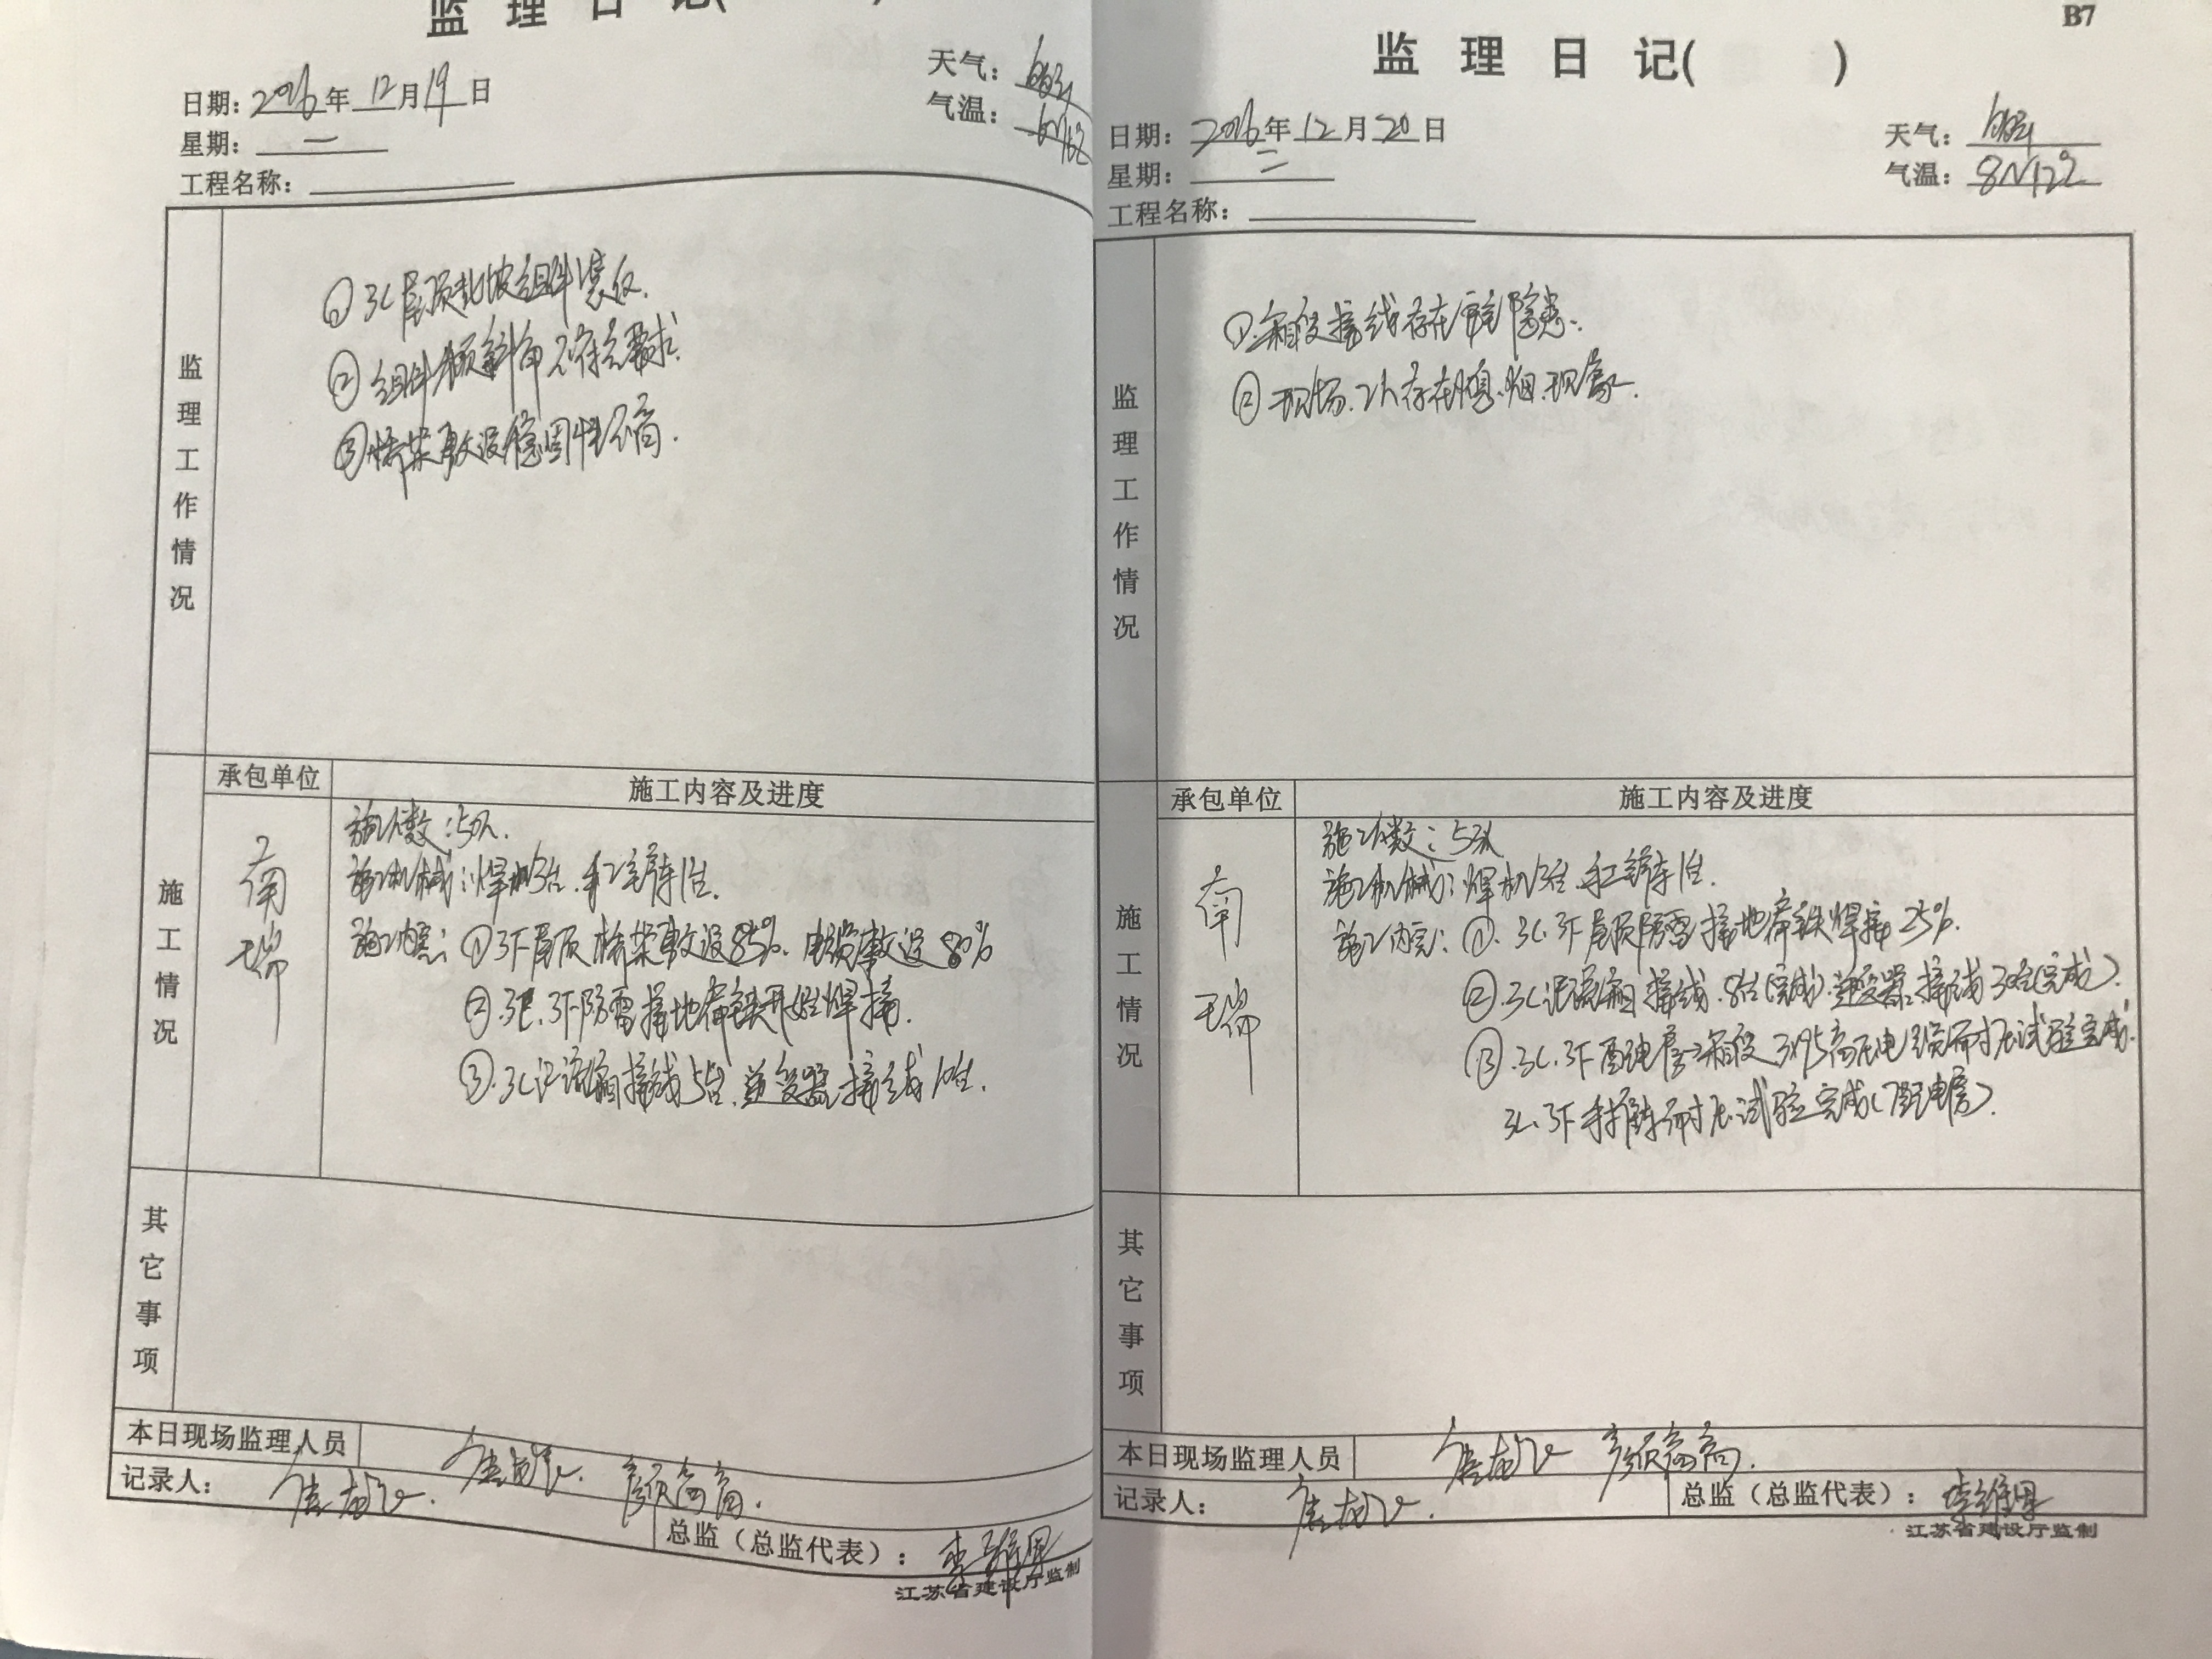 监 理 日 记( )
日期：2016年12月19日
天气：晴
星期：一
气温：
工程名称：
监理工作情况
① 3C屋顶北坡组件
② 组件倾斜角不符合要求.
③ 桥架敷设稳固性不高.
施工情况
承包单位
施工内容及进度
南瑞
施工人数：50人.
施工机械：焊机3台.手工铲车1台.
施工内容：① 3F屋顶桥架敷设85%.电缆敷设80%
② 3E.3F防雷接地扁铁开始焊接.
③ 3C汇流箱接线5台.逆变器接线10台.
其它事项
本日现场监理人员
记录人：
总监（总监代表）：李维
江苏省建设厅监制
B7
监 理 日 记( )
日期：2016年12月20日
天气：晴
星期：二
气温：8~12℃
工程名称：
监理工作情况
① 箱变接线存在安全隐患.
② 现场工人存在吸烟现象.
施工情况
承包单位
施工内容及进度
南瑞
施工人数：53人
施工机械：焊机3台.手工铲车1台.
施工内容：① 3C.3F屋顶防雷接地扁铁焊接25%.
② 3C汇流箱接线.8台(完成).逆变器接线30台(完成).
③ 3C.3F配电房至箱变3×95高压电缆耐压试验完成.
3C.3F手推车耐压试验完成(配电房).
其它事项
本日现场监理人员
记录人：
总监（总监代表）：李维
江苏省建设厅监制